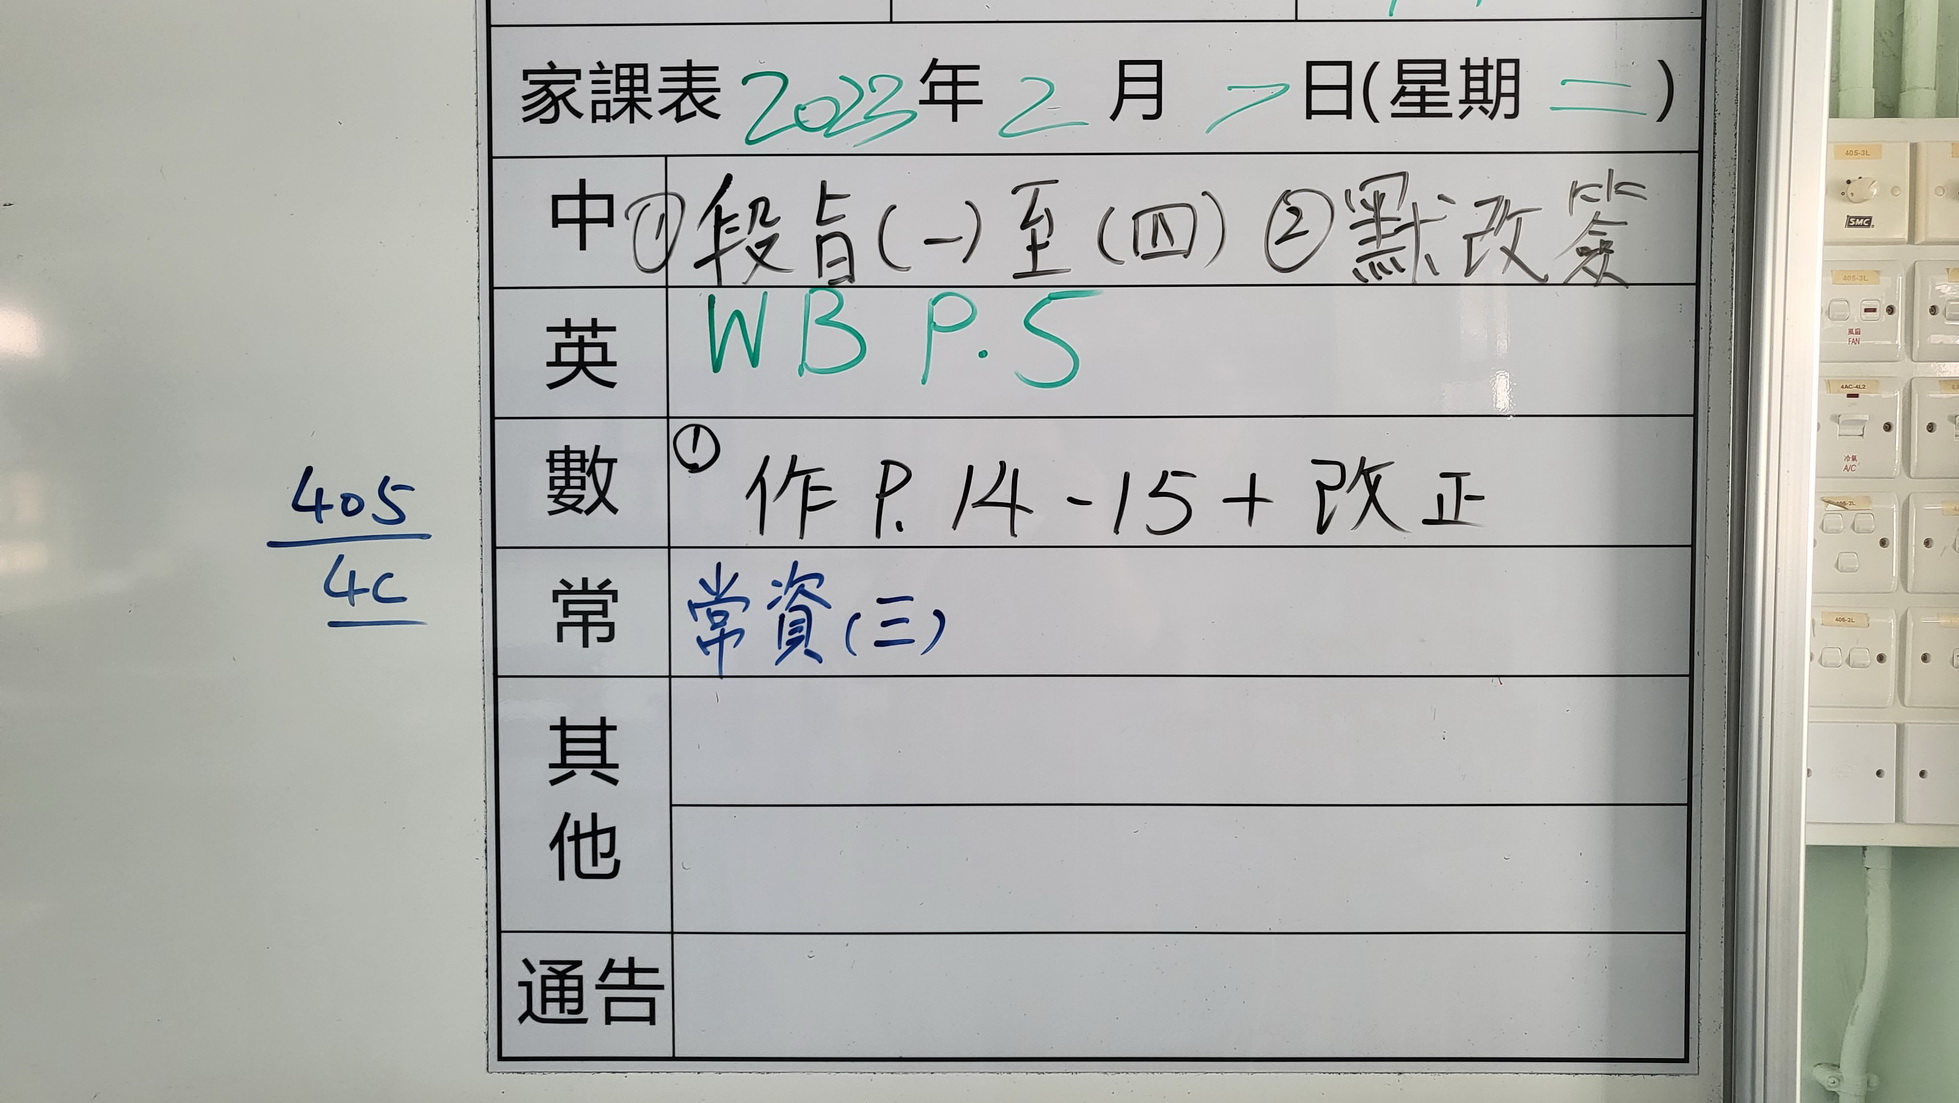 家課表 2023年 2 月 7 日(星期 二 )
中 ①段旨(一)至(四) ②默改簽
英 WB P.5
數 ① 作 P.14-15+改正
常 常資(三)
其他
通告
405
4C
405-3L
SMC
405-3L
風扇
FAN
4AC-4L2
冷氣
A/C
406-2L